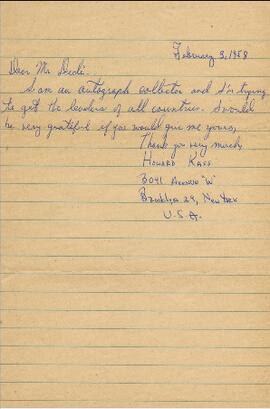 February 3, 1958
Dear Mr.
I am an autograph collector and I'm trying
to get the leaders of all countries. I would
be very grateful if you would give me yours,
Thank you very much,
Howard Kass
3041 Avenue "W"
Brooklyn 29, New York
U.S.A.